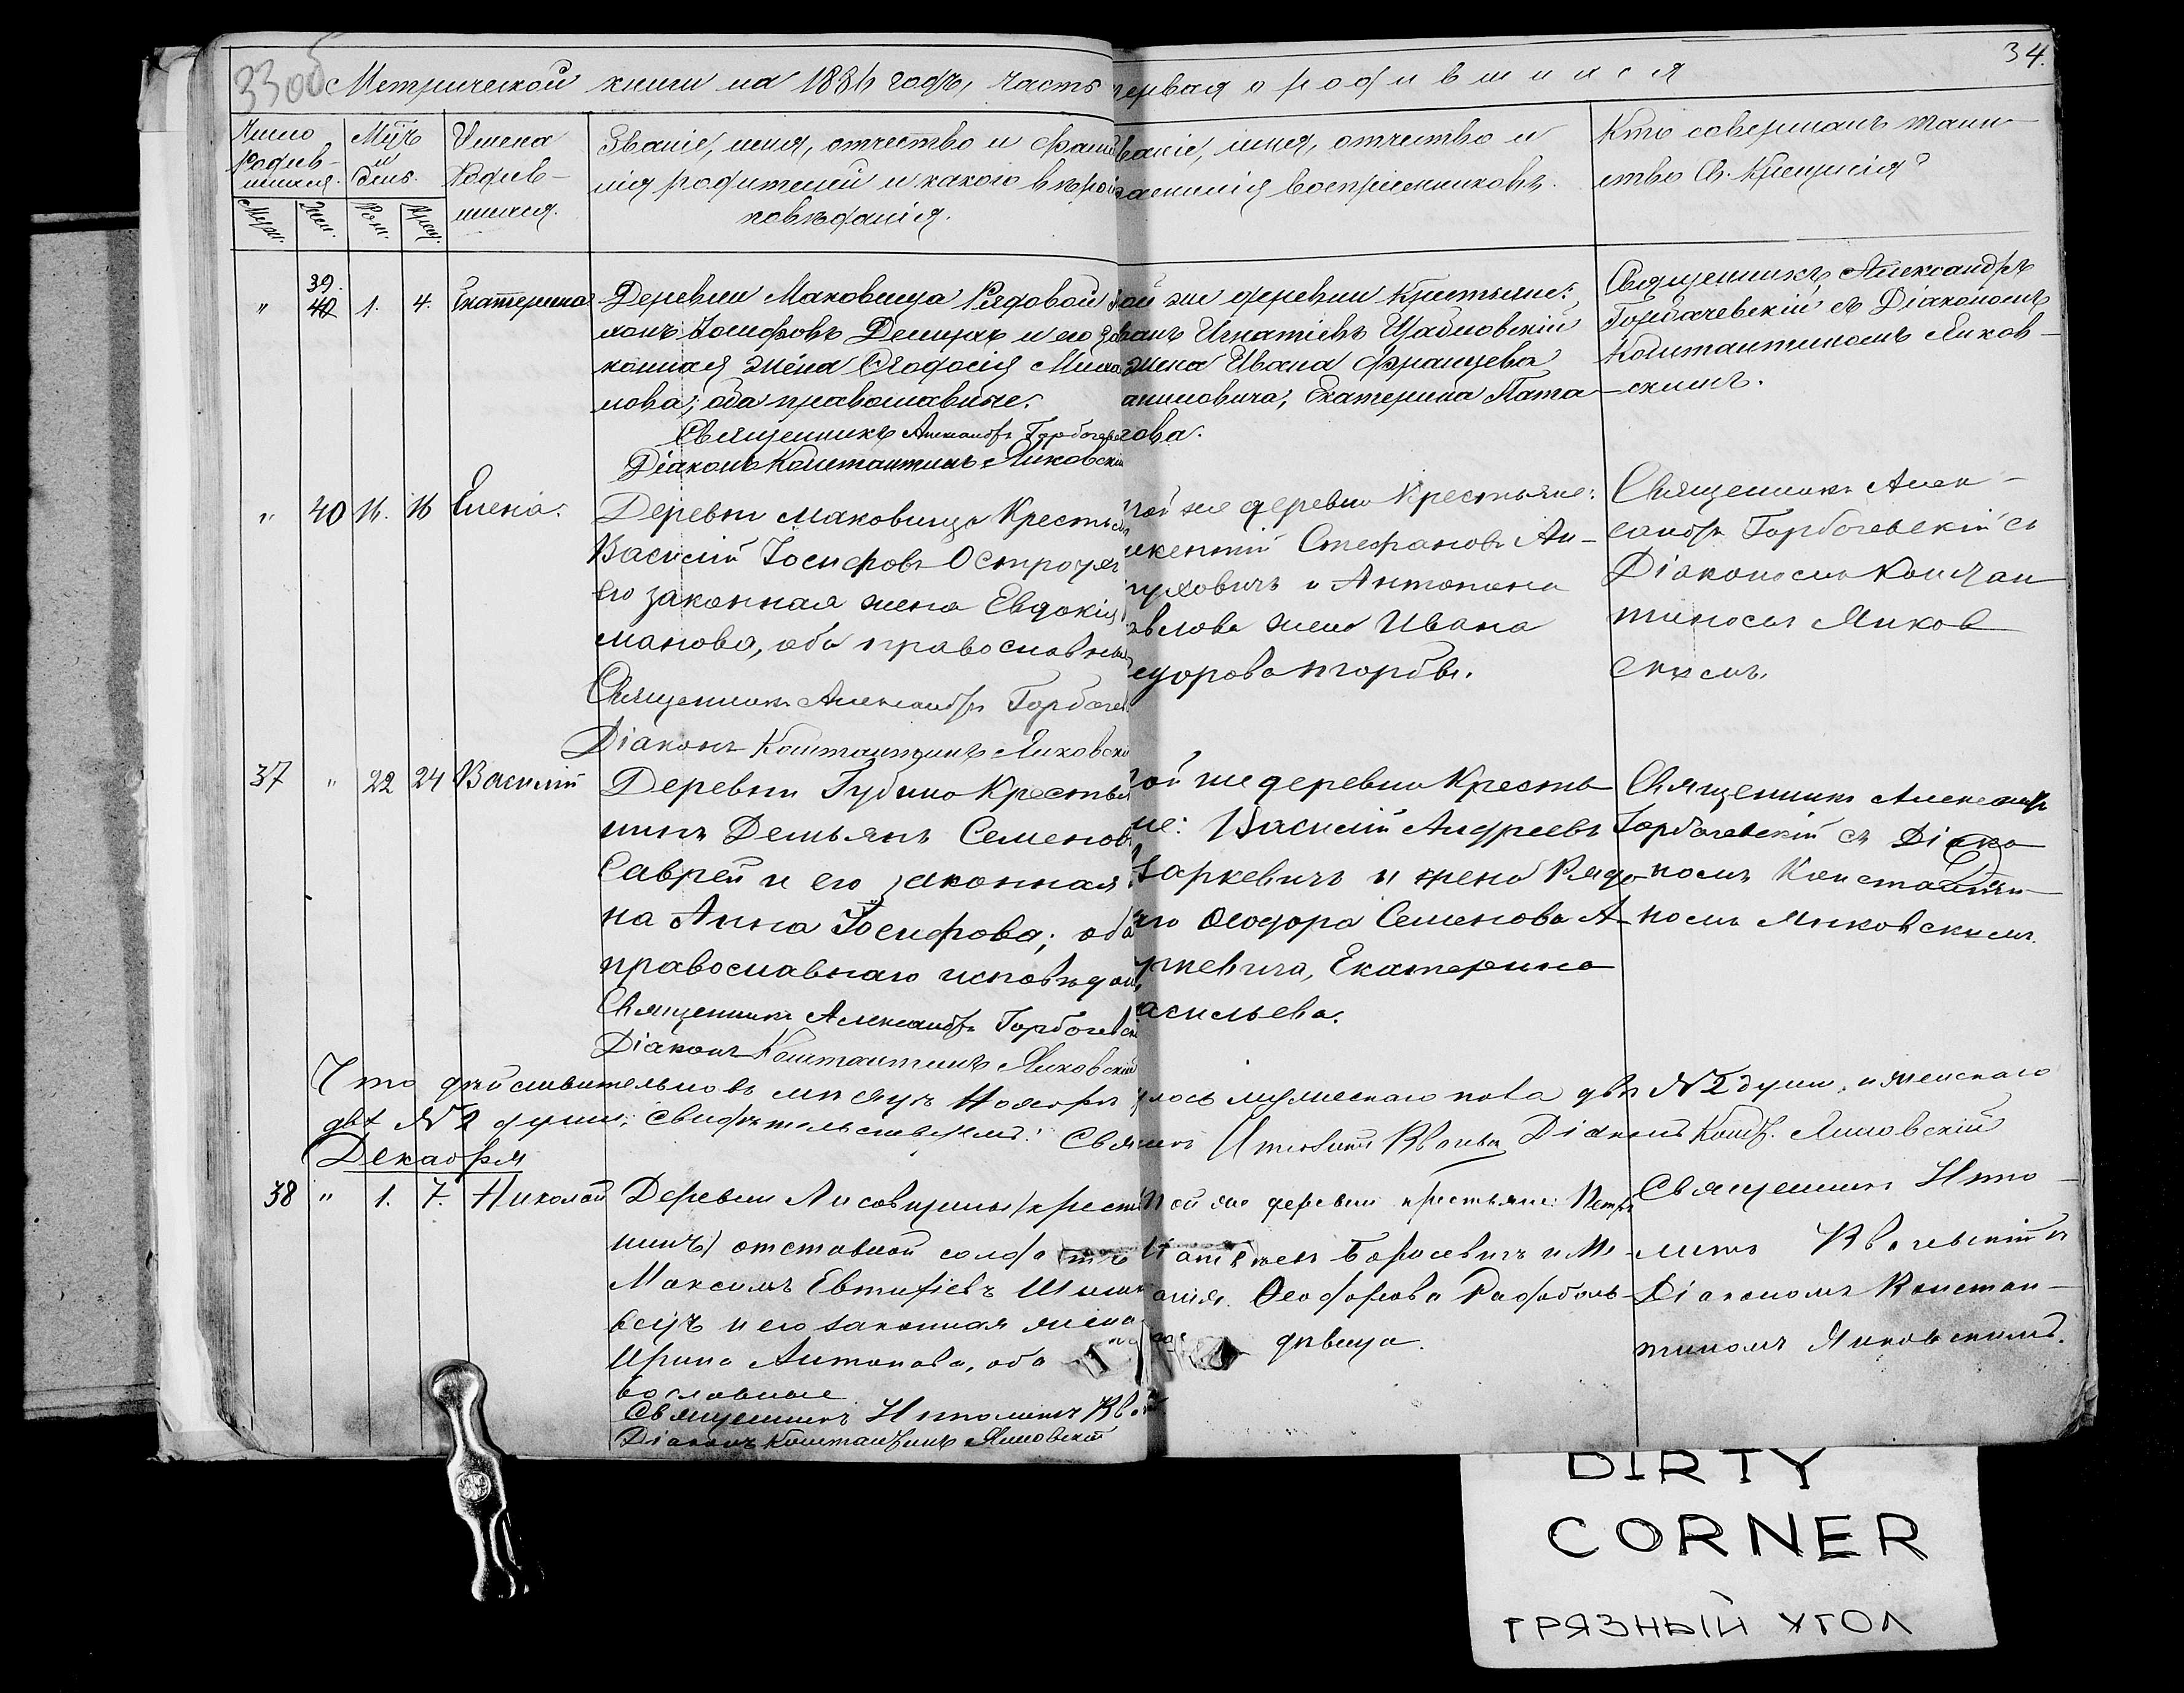 33об
34.
Метрической книги на 1886 годъ, часть первая о родившихся
Число родив-шихся.
Муж. Жен.
Мцъ и день.
Рож. Крещ.
Имена родив-шихся.
Званіе, имя, отчество и фами
лія родителей и какого вѣрои
повѣданія.
Званіе, имя, отчество и
фамилія воспріемниковъ.
Кто совершалъ таин-
ство Св. Крещенія?
" 39. 40 1. 4. Екатерина
Деревни Маковища Рядовой
конъ Іосифовъ Демчукъ и его за
конная жена Ѳеодосія
лова; оба православные.
Священникъ Александръ Горбачев
Діаконъ Константинъ Янковскій
той же деревни Крестьяне:
Игнатіевъ
жена Ивана Францева
Екатерина Пата-
пова.
Священникъ Александръ
Горбачевскій съ Діакономъ
Константиномъ Янков-
скимъ.
" 40 16. 16 Елена.
Деревни Маковища Крестья
Василій Іосифовъ
его законная жена Евдокія
манова, оба православные
Священникъ Александръ Горбачев
Діаконъ Константинъ Янковскій
той же деревни Крестьяне:
икентій Стефановъ Ан-
и Антонина
авлова жена Ивана
Священникъ Алек-
сандръ Горбачевскій съ
Діакономъ Констан
тиномъ Янков
скимъ.
37 " 22 24 Василій
Деревни Губино Крестья
нинъ Демьянъ Семеновъ
Саврей и его законная
на Анна Іосифова; оба
православнаго исповѣдан
Священникъ Александръ Горбачевскій
Діаконъ Константинъ Янковскій
той же деревни Кресть
не: Василій Андреевъ
Харкевичъ и жена Рядо
го Ѳеодора Семенова А-
Екатерина
асильева.
Священникъ Александръ
Горбачевскій съ Діако
номъ Константи-
номъ Янковскимъ.
Что дѣйствительно въ мѣсяцѣ Ноябрѣ лось мужескаго пола двѣ №2 души, и женскаго
двѣ №2 души, свидѣтельствуемъ: Священ Діаконъ Конст. Янковскій
Декабря
38 " 1. 7. Николай
Деревни Лисовщины /крестья
нинъ/ отставной солдатъ
Максимъ Евтифіевъ
и его законная жена
Ирина Антонова, оба
вославные
Священникъ
Діаконъ Константинъ Янковскій
той же деревни крестьяне: Петръ
Борисевичъ и
Ѳеодорова
дѣвица.
Священникъ
Діакономъ Констан-
тиномъ Янковскимъ.
DIRTY
CORNER
ГРЯЗНЫЙ УГОЛ